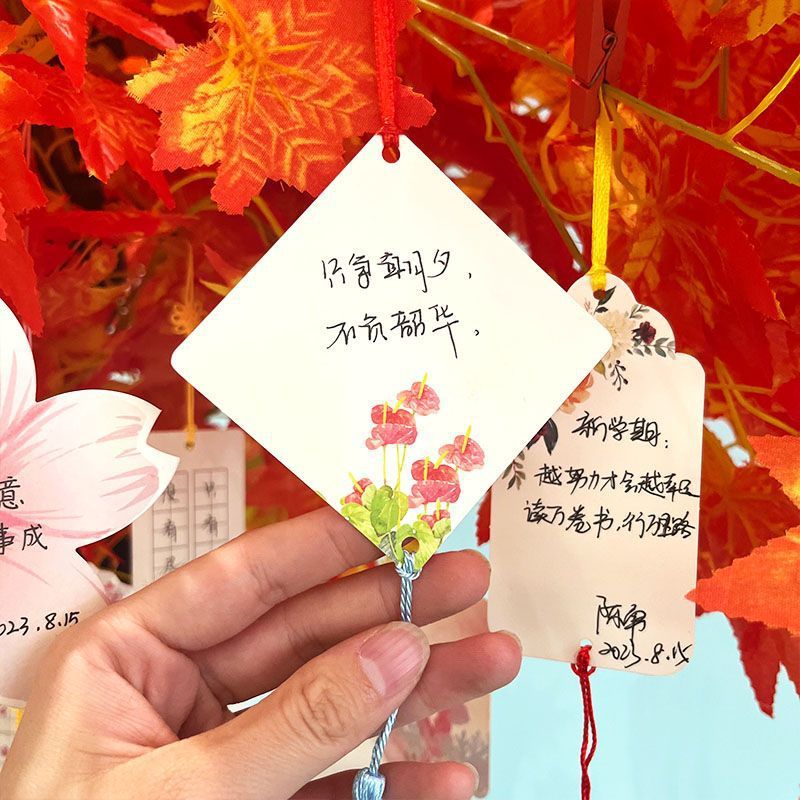 只争朝夕，
不负韶华。
新学期：
越努力才会越幸运
读万卷书，行万里路
2023.8.15
意
事成
023.8.15